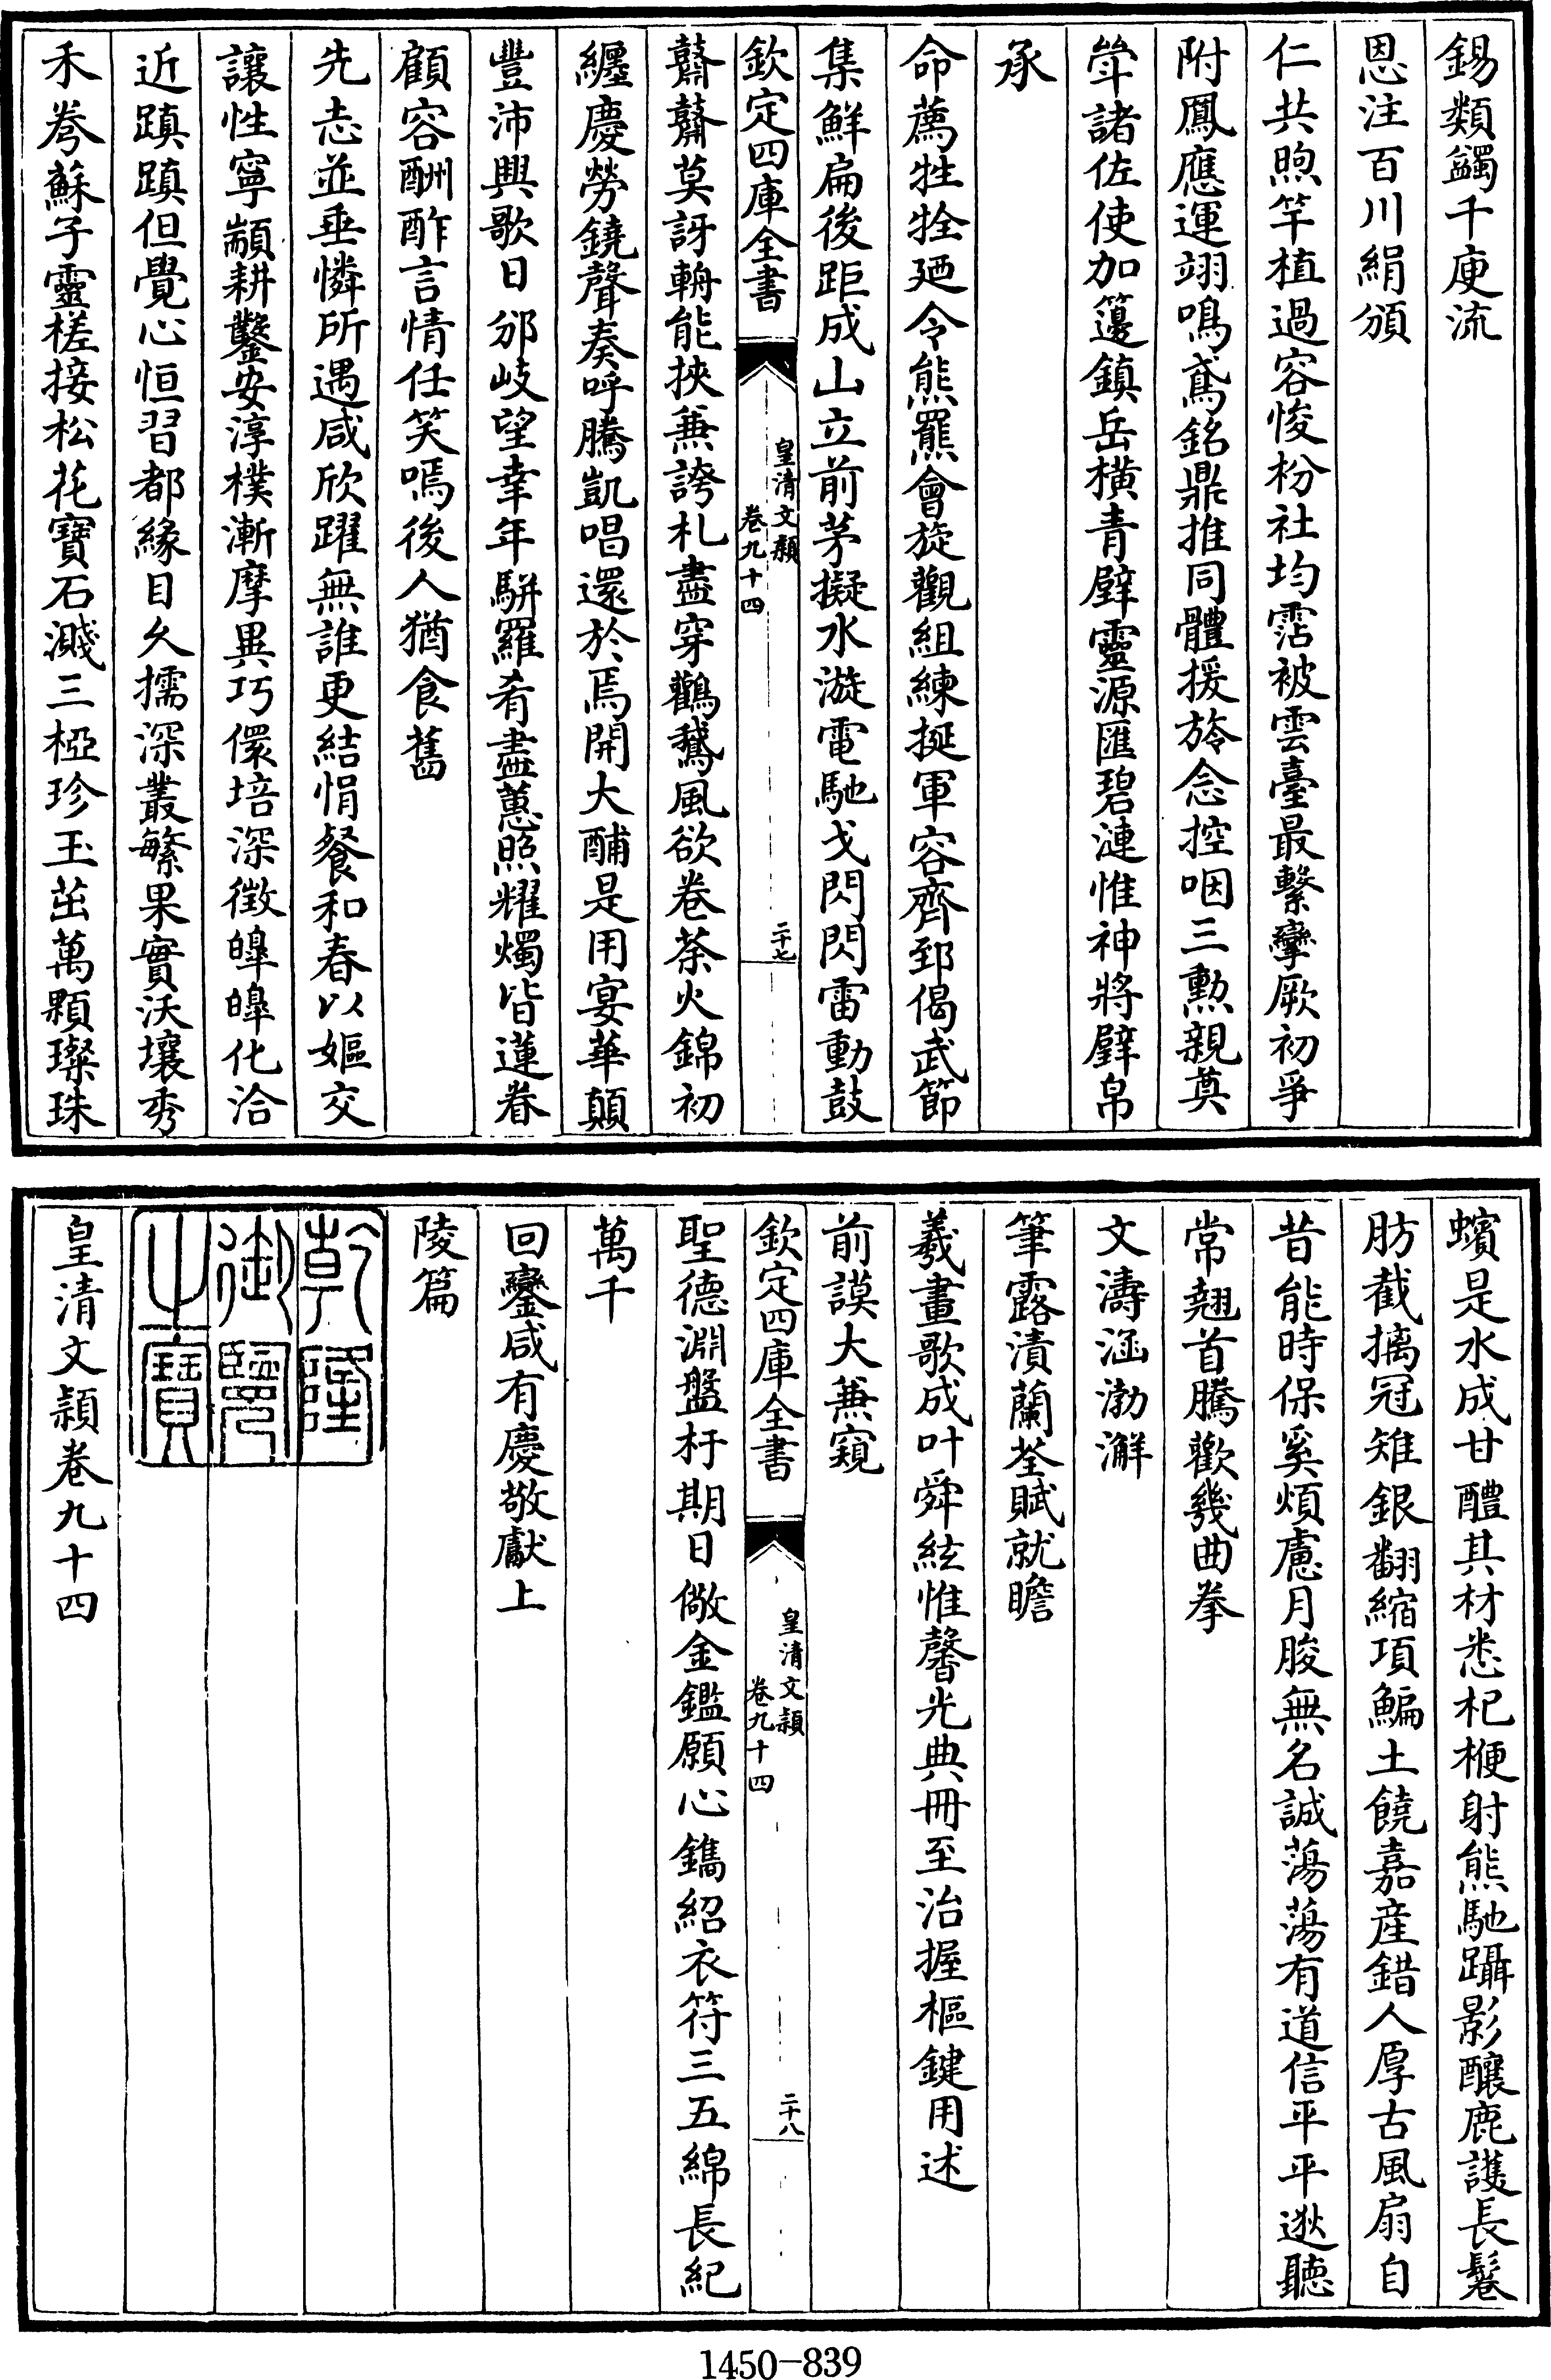 錫類蠲千庾流
恩注百川絹頒
仁共煦竿植過容悛枌社均霑被雲臺最繫孿厥初爭
附鳳應運翊鳴鳶銘鼎推同體援旍念控咽三勲親奠
斝諸佐使加籩鎮岳橫青壁靈源匯碧漣惟神將璧帛
承
命薦牲牷廼令熊羆會旋觀組練挻軍容齊郅偈武節
集鮮扁後距成山立前茅擬水漩電馳戈閃閃雷動鼓
欽定四庫全書
皇清文穎
卷九十四
二十七
鼘鼘莫訝輈能挾兼誇札盡穿鸛鵞風欲卷荼火錦初
纒慶勞鐃聲奏呼騰凱唱還於焉開大酺是用宴華顛
豐沛興歌日邠岐望幸年駢羅肴盡蔥照耀燭皆蓮眷
顧容酬酢言情任笑嗎後人猶食舊
先志並垂憐所遇咸欣躍無誰更結悁餐和春以嫗交
讓性寧顓耕鑿安淳樸漸摩異巧儇培深徴皥皥化洽
近蹎蹎但覺心恒習都緣目久擩深叢繁果實沃壤秀
禾弮蘇子靈槎接松花寶石濺三椏珍玉茁萬顆璨珠
蠙是水成甘醴其材悉杞楩射熊馳躡影釀鹿護長鬈
肪截摛冠雉銀翻縮項鯿土饒嘉産錯人厚古風扇自
昔能時保奚煩慮月朘無名誠蕩蕩有道信平平逖聽
常翹首騰歡幾曲拳
文濤涵渤澥
筆露漬蘭荃賦就瞻
羲畫歌成叶舜絃惟馨光典冊至治握樞鍵用述
前謨大兼窺
欽定四庫全書
皇清文穎
卷九十四
二十八
聖德淵盤杅期日儆金鑑願心鐫紹衣符三五綿長紀
萬千
回鑾咸有慶敬獻上
陵篇
乾隆
御覽
之寶
皇清文穎卷九十四
1450-839